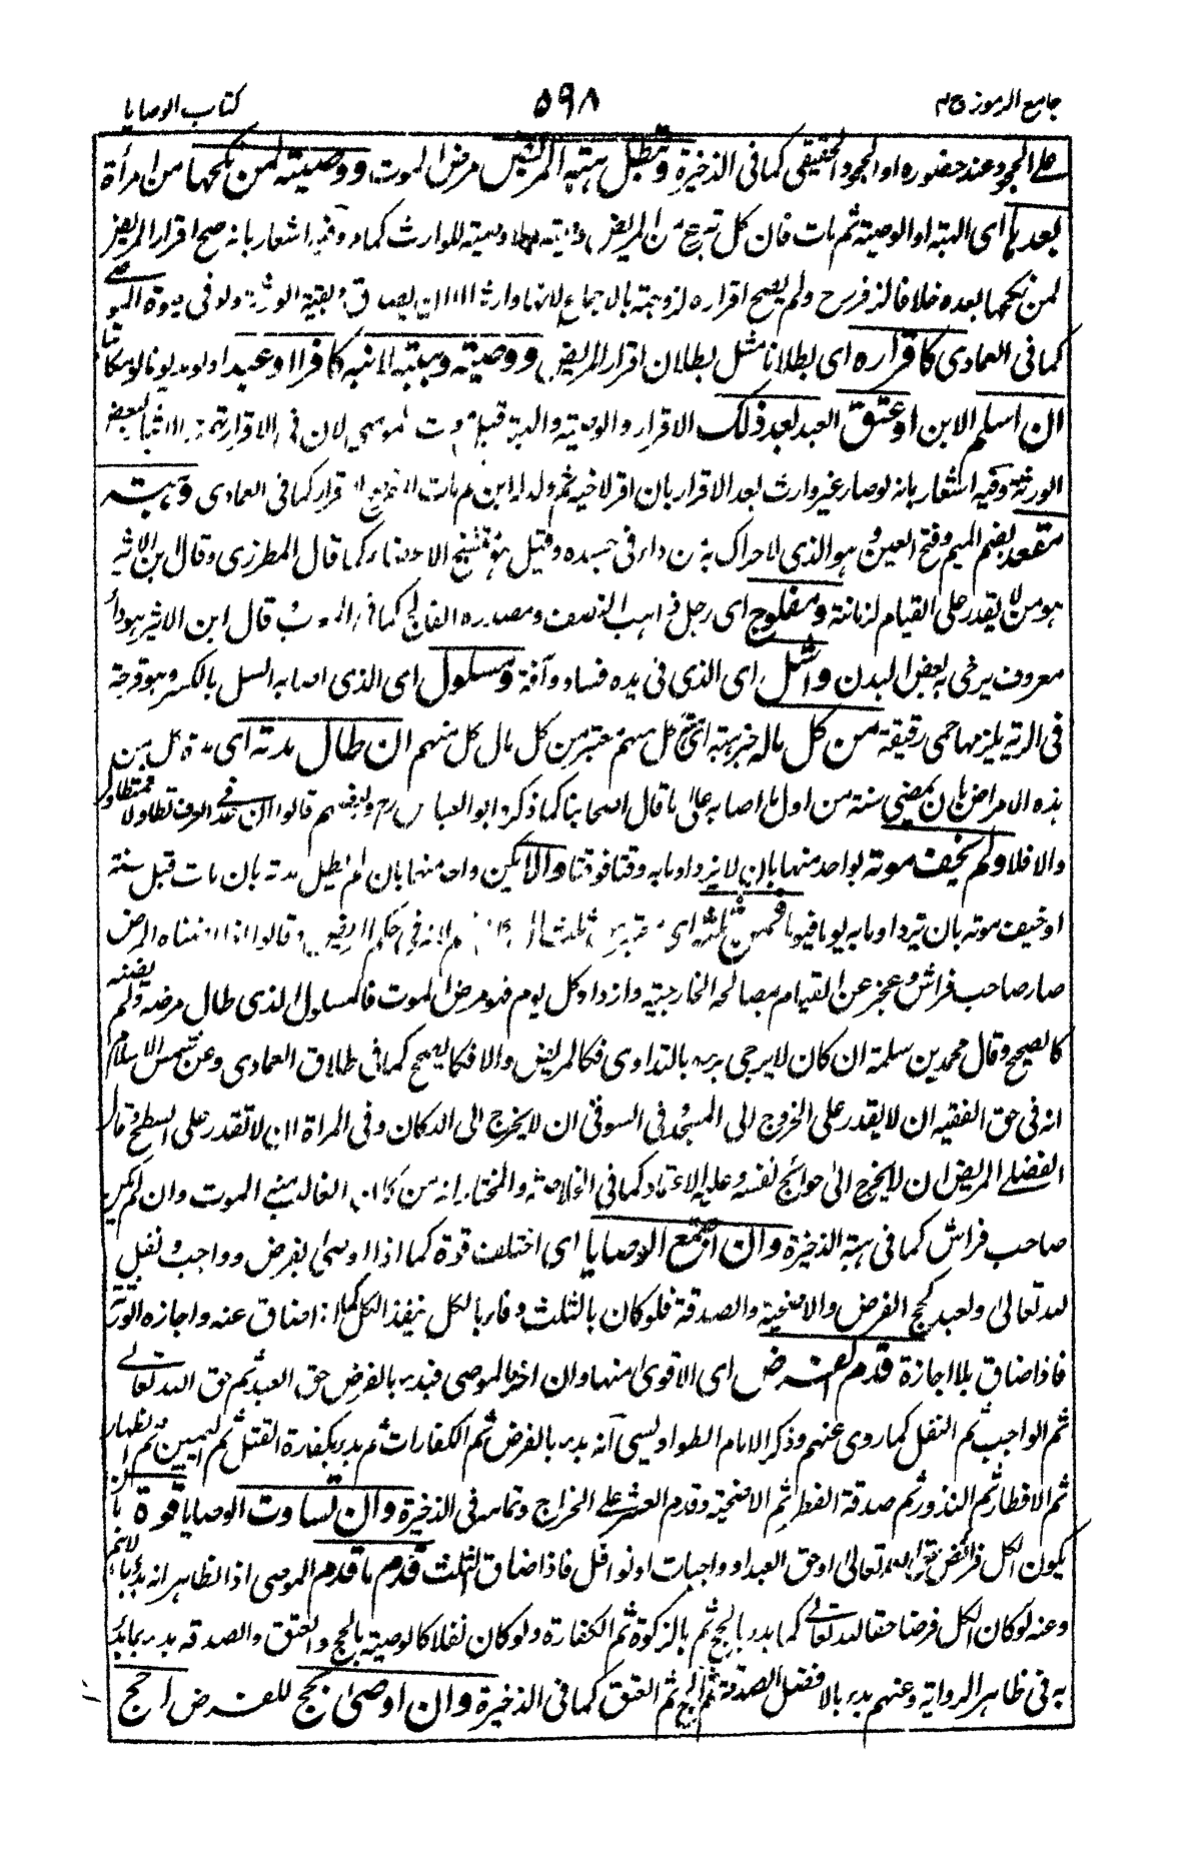 جامع الرموز ج ٢
٥٩٨
كتاب الوصايا
على الجحود عند حضوره او الجحود الحقيقى كما فى الذخيرة وتبطل هبته المريض مرض الموت ووصيته لمن نكحها من امرأة
بعدها اى الهبة او الوصية ثم مات فان كل تبرع من المريض وصية للوارث كما مر وفيه اشعار بانه صح اقرار المريض
لمن نكحها بعده خلافا لزفر رح ولم يصح اقراره لزوجته بالاجماع لانها وارثة بقية الورثة ولو فى
كما فى العمادى كاقراره اى بطلانا مثل بطلان اقرار المريض ووصيته وهبته لابنه كافرا او عبدا او لو مديونا او مكاتبا
ان اسلم الابن او عتق العبد بعد ذلك الاقرار والوصية والهبة قبل موت الموصى لان فى الاقرار تهمة لبعض
الورثة وفيه اشعار بانه لو صار غير وارث بعد الاقرار بان اقر لاخيه ثم ولد له ابن ثم مات قرار كما فى العمادى وهبته
مقعد بضم الميم وفتح العين هو الذى لا حراك به من داء فى جسده وقيل هو متشنج الاعضاء كما قال المطرزى وقال ابن الاثير
هو من لا يقدر على القيام لزمانة ومفلوج اى رجل ذاهب النصف ومصدره الفالج كما فى قال ابن الاثير هو داء
معروف يرخى به بعض البدن واشل اى الذى فى يده فساد وآفة ومسلول اى الذى اصابه السل بالكسر وهو قرحة
فى الرئة يلزمها حمى رقيقة من كل ماله خبر هبته اى كل منهم معتبر من كل مال كل منهم ان طال مدته اى مدة كل من
هذه الامراض بان يمضى سنة من اول ما اصابه على ما قال اصحابنا كما ذكره ابو العباس وبعضهم قالوا ان عد فى العرف تطاولا فمتطاول
والا فلا ولم يخف موته بواحد منها بان لا يزداد ما به وقتا فوقتا والا يكن واحد منها بان لم يطل مدته بان مات قبل سنة
او خيف موته بان يزداد ما به يوما فيوما فمن ثلثه اى لانه فى حكم المريض وقالوا المرض
صار صاحب فراش وعجز عن القيام بمصالحه الخارجية وازداد كل يوم فهو مرض الموت فالمسلول الذى طال مرضه ولم يضنه
كالصحيح وقال محمد بن سلمة ان كان لا يرجى برءه بالتداوى فكالمريض والا فكالصحيح كما فى طلاق العمادى وعن شمس الاسلام
انه فى حق الفقيه ان لا يقدر على الخروج الى المسجد وفى السوقى ان لا يخرج الى الدكان وفى المرأة ان لا تقدر على السطح وقال
الفضلى المريض ان لا يخرج الى حوائج نفسه وعليه الاعتماد كما فى الخلاصة والمختار انه من كان الغالب منه الموت وان لم يكن
صاحب فراش كما فى هبة الذخيرة وان اجتمع الوصايا اى اختلفت قوة كما اذا اوصى بفرض وواجب ونفل
لله تعالى ولعبد كحج الفرض والاضحية والصدقة فلو كان بالثلث وفاء بالكل ينفذ الكل كما اذا ضاق عنه واجازه الورثة
فاذا ضاق بلا اجازة قدم الفرض اى الاقوى منها وان اخره الموصى فيبدء بالفرض حق العبد ثم حق الله تعالى
ثم الواجب ثم النفل كما روى عنهم وذكر الامام الطواويسى انه بدء بالفرض ثم الكفارات ثم بدء بكفارة القتل ثم اليمين ثم الظهار
ثم الافطار ثم النذور ثم صدقة الفطر ثم الاضحية وقدم العشر على الخراج وتمامه فى الذخيرة وان تساوت الوصايا قوة بان
يكون الكل فرائض حق الله تعالى او حق العبد او واجبات او نوافل فاذا ضاق الثلث قدم ما قدم الموصى اذ الظاهر انه بدأ بالاهم
وعنه لو كان الكل فرضا حقا لله تعالى كما بدء بالحج ثم بالزكوة ثم الكفارة ولو كان نفلا كالوصية بالحج والعتق والصدقة بدء بما بدأ
به فى ظاهر الرواية وعنهم بدء بالافضل الصدقة ثم الحج ثم العتق كما فى الذخيرة وان اوصى بحج للفرض احج